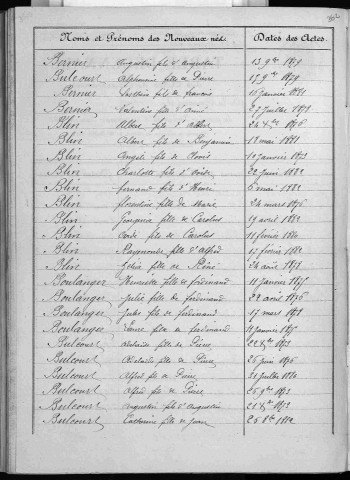 Noms et Prénoms des Nouveaux nés. Dates des Actes.
Bernier Augustin fils d'Augustin 13 9bre 1879
Bulcourt Alphonsine fille de Pierre 17 9bre 1879
Bernier fils de francois 10 janvier 1881
Bernier Valentine fille d'Aimé 27 juillet 1878
Blin Albert fils d'Albert 24 1876
Blin Albert fils de Benjamin 12 mai 1881
Blin Angèle fille de Louis 10 janvier 1873
Blin Charlotte fille d' 22 juin 1882
Blin fernand fils d'Henri 6 mai 1882
Blin florentine fille de Marie 24 mars 1876
Blin Georgina fille de Carolus 19 avril 1882
Blin fils de Carolus 11 février 1880
Blin Raymonde fille d'Alfred 12 février 1882
Blin fille de Réné 24 août 1873
Boulanger fille de ferdinand 11 janvier
Boulanger Julie fille de ferdinand 22 août 1876
Boulanger Jules fils de ferdinand 17 mars 1878
Boulanger fille de ferdinand 11 janvier 1875
Bulcourt Adelaïde fille de Pierre
Bulcourt Adelaïde fille de Pierre 26 juin 1876
Bulcourt Alfred fils de Pierre 31 juillet
Bulcourt Alfred fils de Pierre 25 9bre 1873
Bulcourt Augustin fils d'Augustin 21
Bulcourt fille de Jean 25